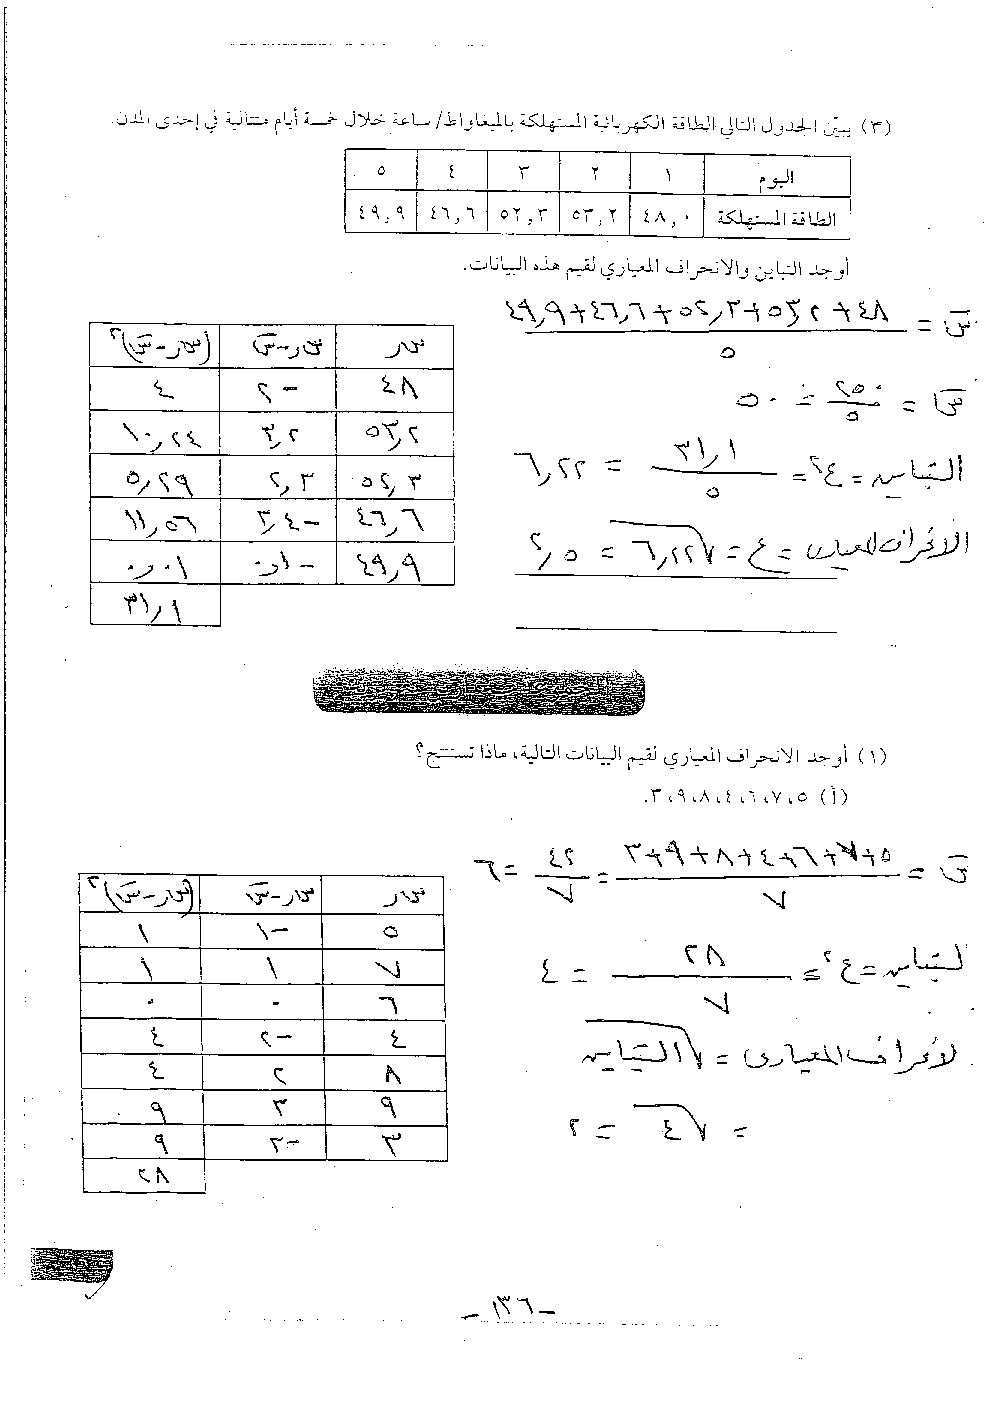 (٣) يبيّن الجدول التالي الطاقة الكهربائية المستهلكة بالميغاواط/ ساعة خلال خمسة أيام متتالية في إحدى المدن.
اليوم ١ ٢ ٣ ٤ ٥
الطاقة المستهلكة ٤٨,٠ ٥٣,٢ ٥٢,٣ ٤٦,٦ ٤٩,٩
أوجد التباين والانحراف المعياري لقيم هذه البيانات.
س̄ = ٤٨ + ٥٣,٢ + ٥٢,٣ + ٤٦,٦ + ٤٩,٩
٥
س̄ = ٢٥٠ / ٥ = ٥٠
التباين = ع٢ = ٣١,١ / ٥ = ٦,٢٢
الانحراف المعياري = ع = √٦,٢٢ = ٢,٥
سر سر-س̄ (سر-س̄)٢
٤٨ -٢ ٤
٥٣,٢ ٣,٢ ١٠,٢٤
٥٢,٣ ٢,٣ ٥,٢٩
٤٦,٦ -٣,٤ ١١,٥٦
٤٩,٩ -٠,١ ٠,٠١
٣١,١
(١) أوجد الانحراف المعياري لقيم البيانات التالية، ماذا تستنتج؟
(أ) ٥، ٧، ٦، ٤، ٨، ٩، ٣.
س̄ = ٥+٧+٦+٤+٨+٩+٣ / ٧ = ٤٢ / ٧ = ٦
لتباين = ع٢ = ٢٨ / ٧ = ٤
لانحراف المعياري = √التباين
= √٤ = ٢
سر سر-س̄ (سر-س̄)٢
٥ -١ ١
٧ ١ ١
٦ ٠ ٠
٤ -٢ ٤
٨ ٢ ٤
٩ ٣ ٩
٣ -٣ ٩
٢٨
-١٣٦-